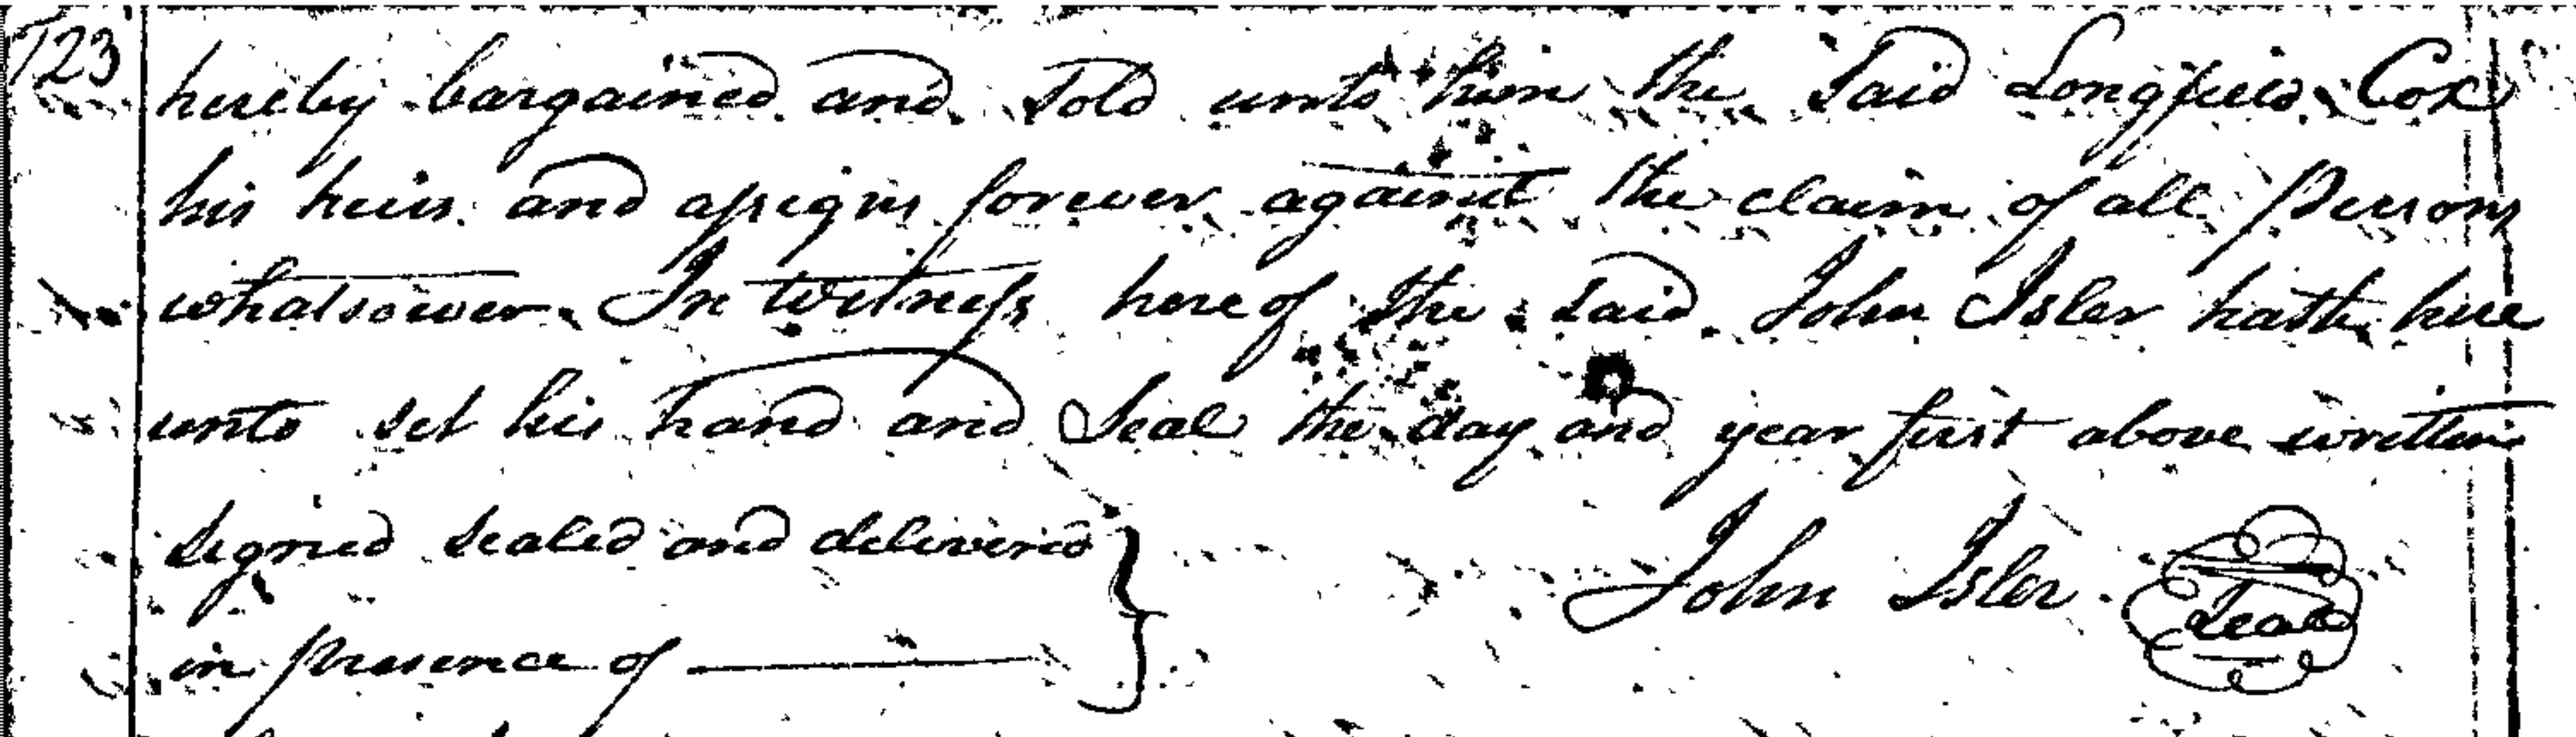 123
hereby bargained and sold unto him the said Longfield Cox
his heirs and assigns forever against the claim of all Persons
whatsoever. In witness here of the said John Isler hath here
unto set his hand and Seal the day and year first above written
Signed Sealed and delivered
in presence of
John Isler Seal